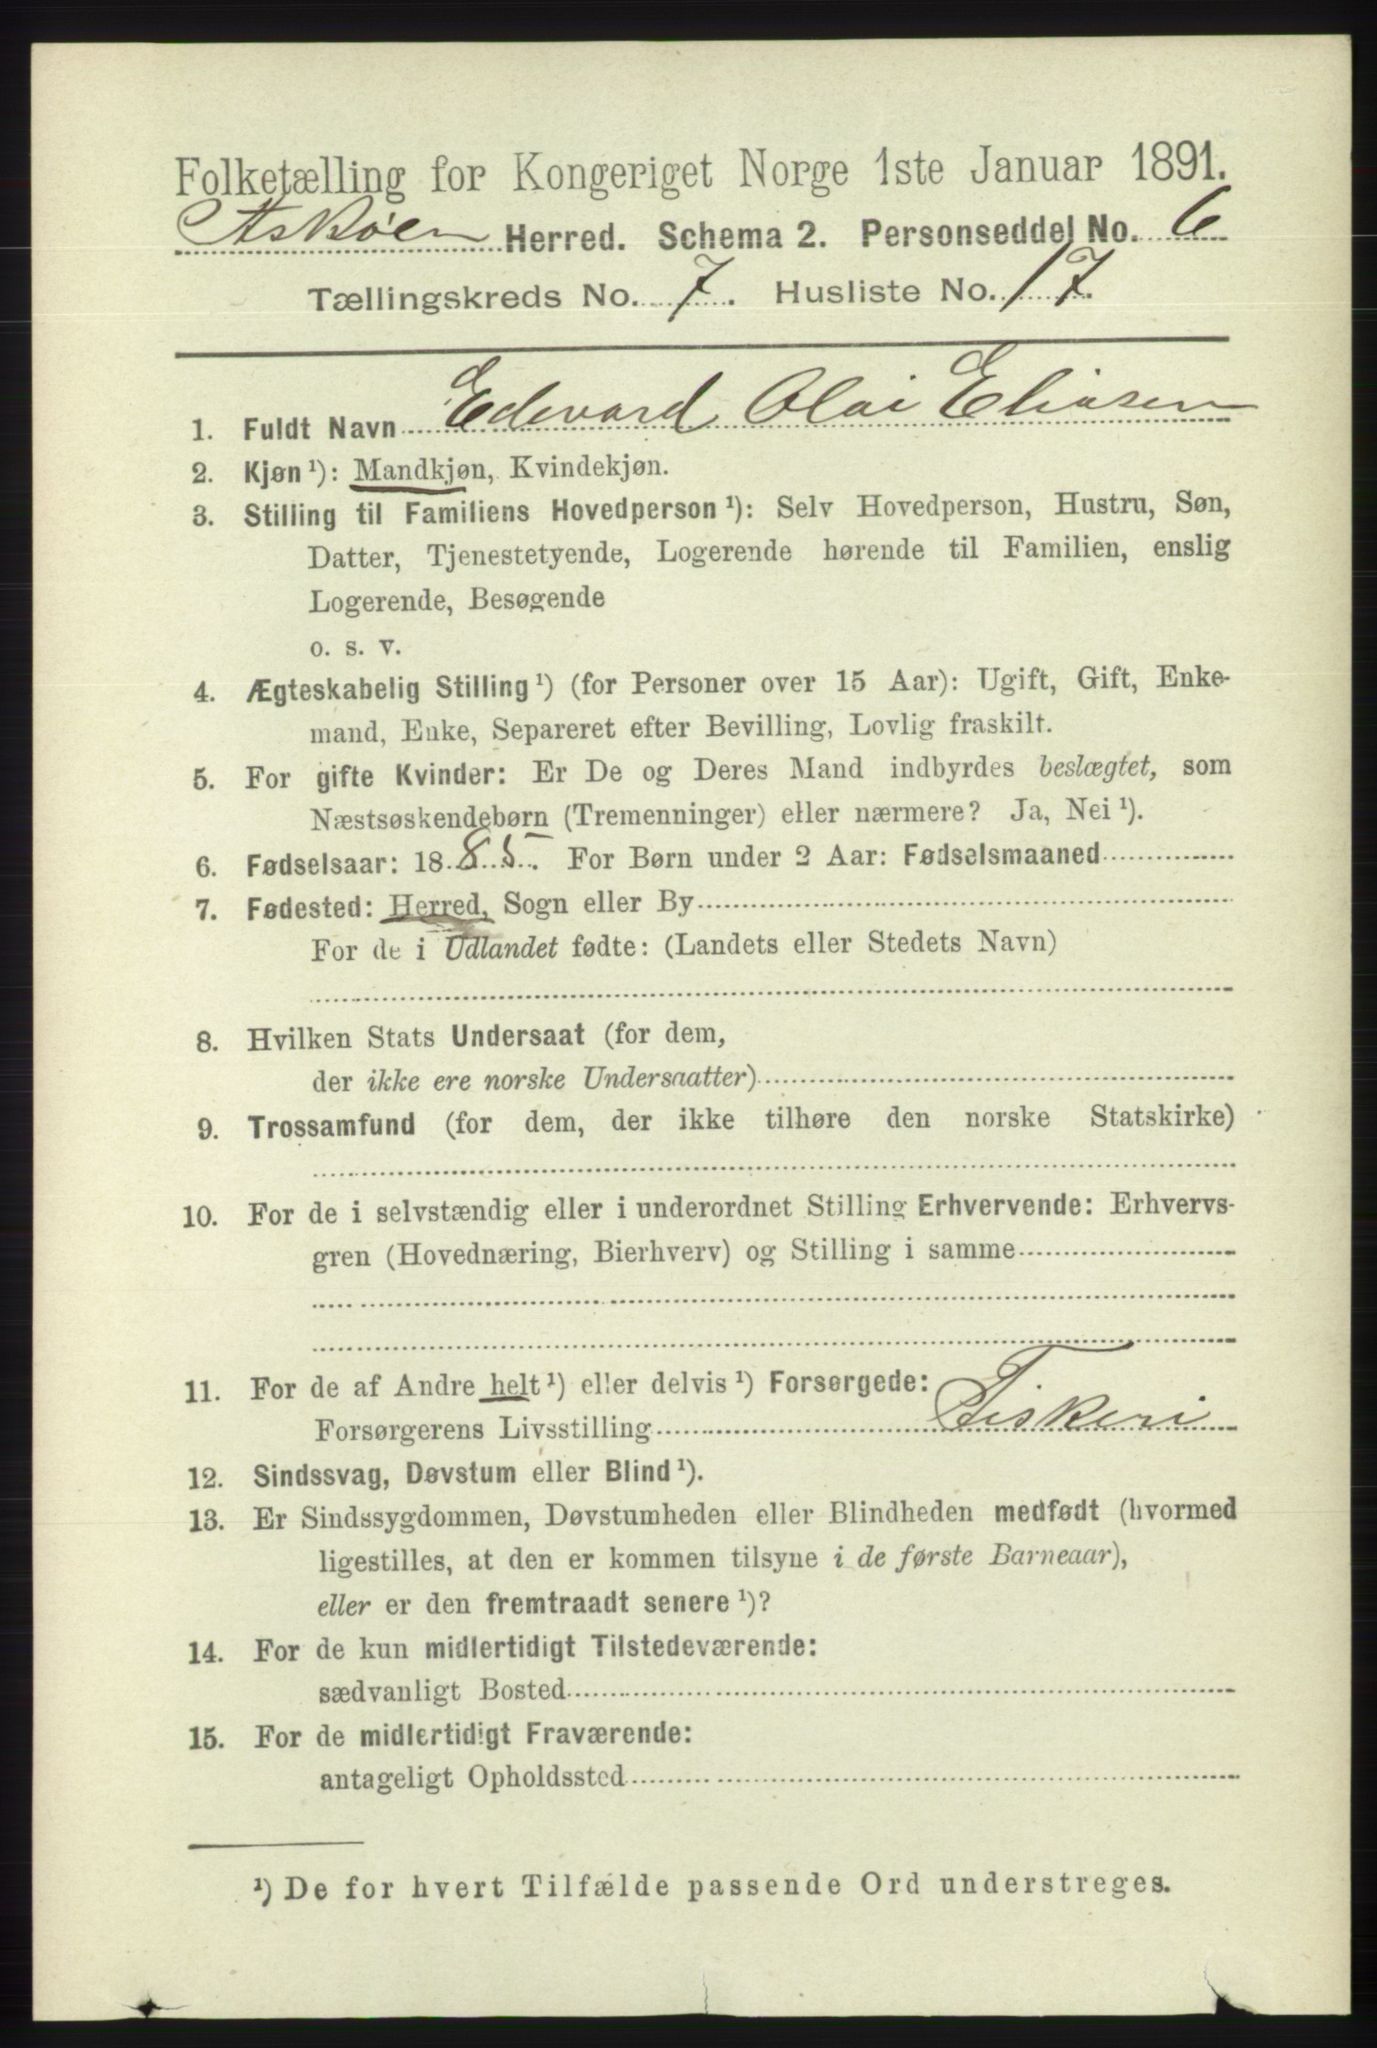 Folketælling for Kongeriget Norge 1ste Januar 1891.
Askøen Herred. Schema 2. Personseddel No. 6
Tællingskreds No. 7. Husliste No. 17.
1. Fuldt Navn Edevard Olai Eliasen
2. Kjøn ¹): Mandkjøn, Kvindekjøn.
3. Stilling til Familiens Hovedperson ¹): Selv Hovedperson, Hustru, Søn,
Datter, Tjenestetyende, Logerende hørende til Familien, enslig
Logerende, Besøgende
o. s. v.
4. Ægteskabelig Stilling ¹) (for Personer over 15 Aar): Ugift, Gift, Enke-
mand, Enke, Separeret efter Bevilling, Lovlig fraskilt.
5. For gifte Kvinder: Er De og Deres Mand indbyrdes beslægtet, som
Næstsøskendebørn (Tremenninger) eller nærmere? Ja, Nei ¹).
6. Fødselsaar: 1885. For Børn under 2 Aar: Fødselsmaaned
7. Fødested: Herred, Sogn eller By
For de i Udlandet fødte: (Landets eller Stedets Navn)
8. Hvilken Stats Undersaat (for dem,
der ikke ere norske Undersaatter)
9. Trossamfund (for dem, der ikke tilhøre den norske Statskirke)
10. For de i selvstændig eller i underordnet Stilling Erhvervende: Erhvervs-
gren (Hovednæring, Bierhverv) og Stilling i samme
11. For de af Andre helt ¹) eller delvis ¹) Forsørgede:
Forsørgerens Livsstilling Fiskeri
12. Sindssvag, Døvstum eller Blind ¹).
13. Er Sindssygdommen, Døvstumheden eller Blindheden medfødt (hvormed
ligestilles, at den er kommen tilsyne i de første Barneaar),
eller er den fremtraadt senere ¹)?
14. For de kun midlertidigt Tilstedeværende:
sædvanligt Bosted
15. For de midlertidigt Fraværende:
antageligt Opholdssted
¹) De for hvert Tilfælde passende Ord understreges.